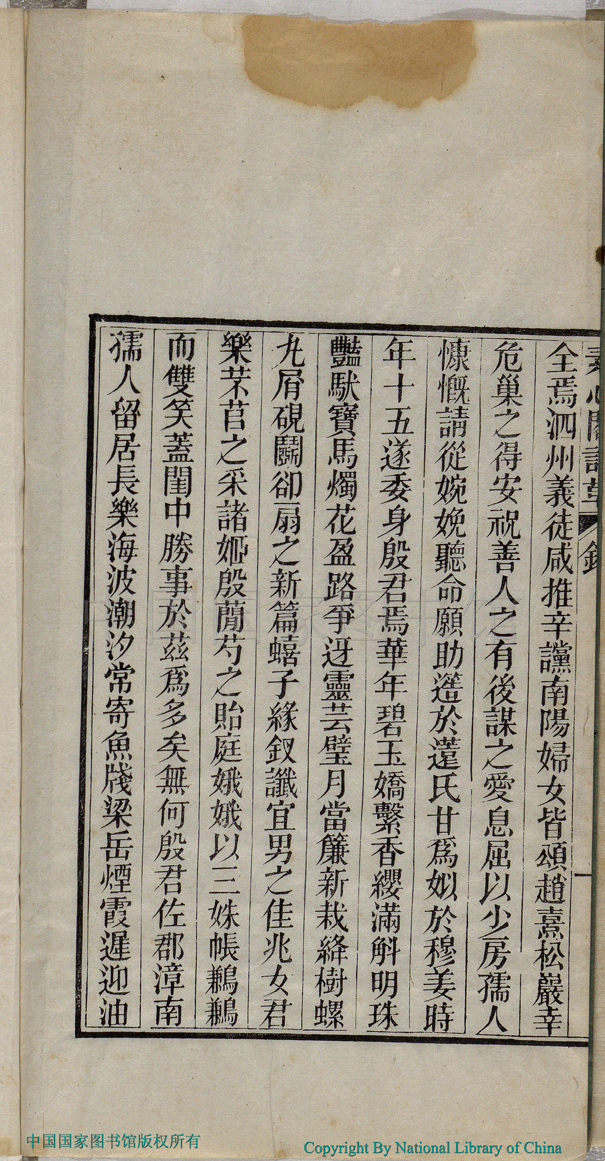 全焉泗州義徒咸推辛讜南陽婦女皆頌趙憙松巖幸
危巢之得安祝善人之有後謀之愛息屈以少房孺人
慷慨請從婉娩聽命願助簉於薳氏甘爲姒於穆姜時
年十五遂委身殷君焉華年碧玉嬌繫香纓滿斛明珠
豔馱寶馬燭花盈路爭迓靈芸璧月當簾新栽絳樹螺
丸屑硯鬭卻扇之新篇蟢子緣釵讖宜男之佳兆女君
樂芣苢之采諸姬殷蕑芍之貽庭娥娥以三姝帳鶼鶼
而雙笑蓋閨中勝事於茲爲多矣無何殷君佐郡漳南
孺人留居長樂海波潮汐常寄魚牋梁岳煙霞遲迎油
中国国家图书馆版权所有
Copyright By National Library of China